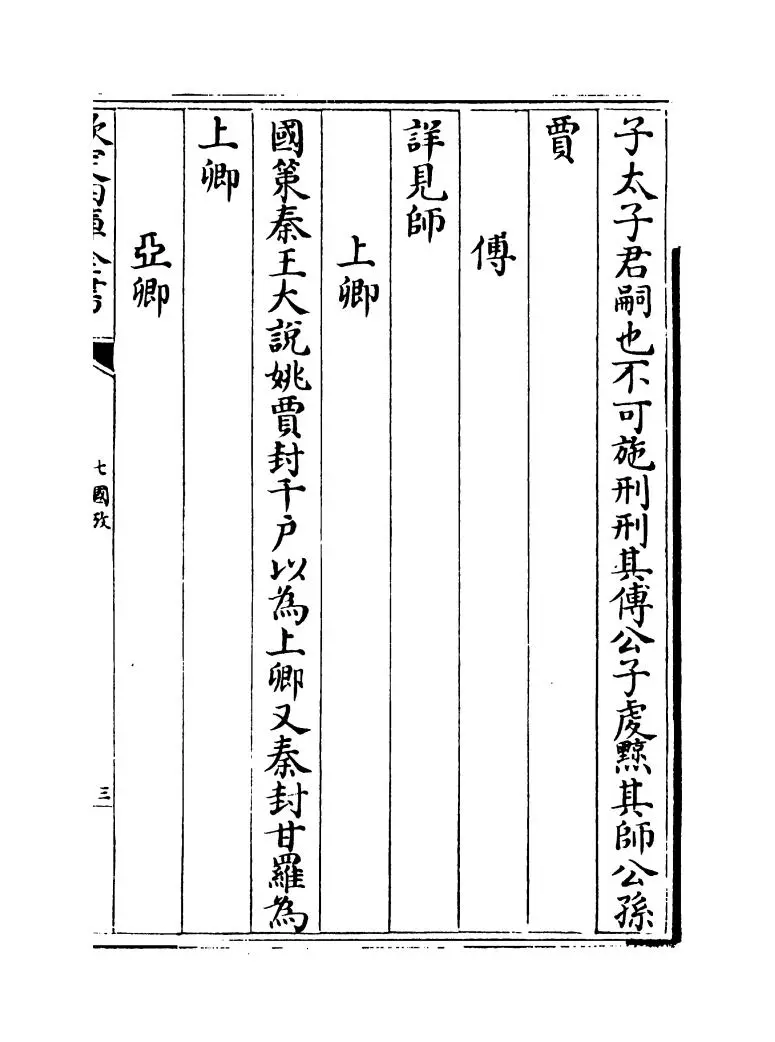 子太子君嗣也不可施刑刑其傅公子虔黥其師公孫
賈
傅
詳見師
上卿
國策秦王大說姚賈封千戶以為上卿又秦封甘羅為
上卿
亞卿
欽定四庫全書
七國攷
三